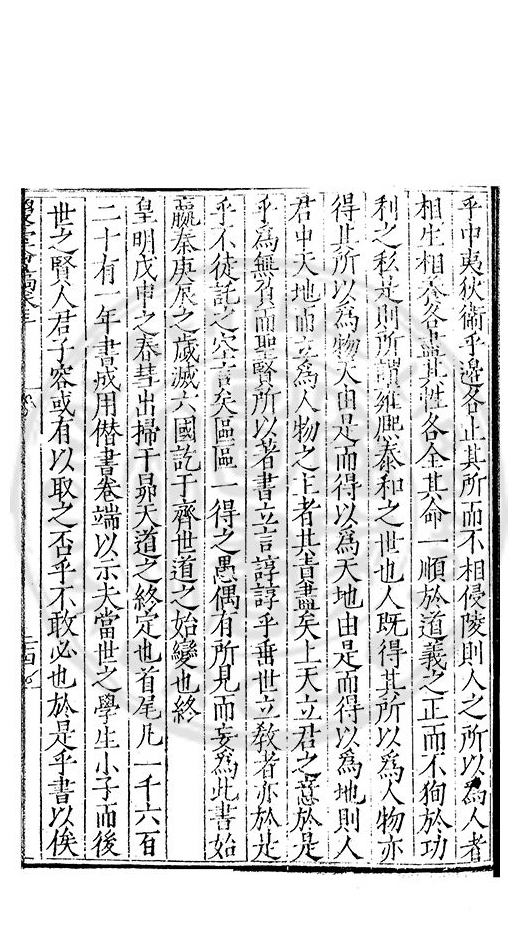 乎中夷狄衞乎邊各止其所而不相侵陵則人之所以爲人者
相生相養各盡其性各全其命一順於道義之正而不狥於功
利之私是則所謂雍熈泰和之世也人旣得其所以爲人物亦
得其所以爲物天由是而得以爲天地由是而得以爲地則人
君中天地而立爲人物之主者其責盡矣上天立君之意於是
乎爲無負而聖賢所以著書立言諄諄乎垂世立敎者亦於是
乎不徒託之空言矣區區一得之愚偶有所見而妄爲此書始
嬴秦庚辰之歲滅六國訖于齊世道之始變也終
皇明戊申之春彗出掃于昴天道之終定也首尾凡一千六百
二十有一年書成用僣書卷端以示夫當世之學生小子而後
世之賢人君子容或有以取之否乎不敢必也於是乎書以俟